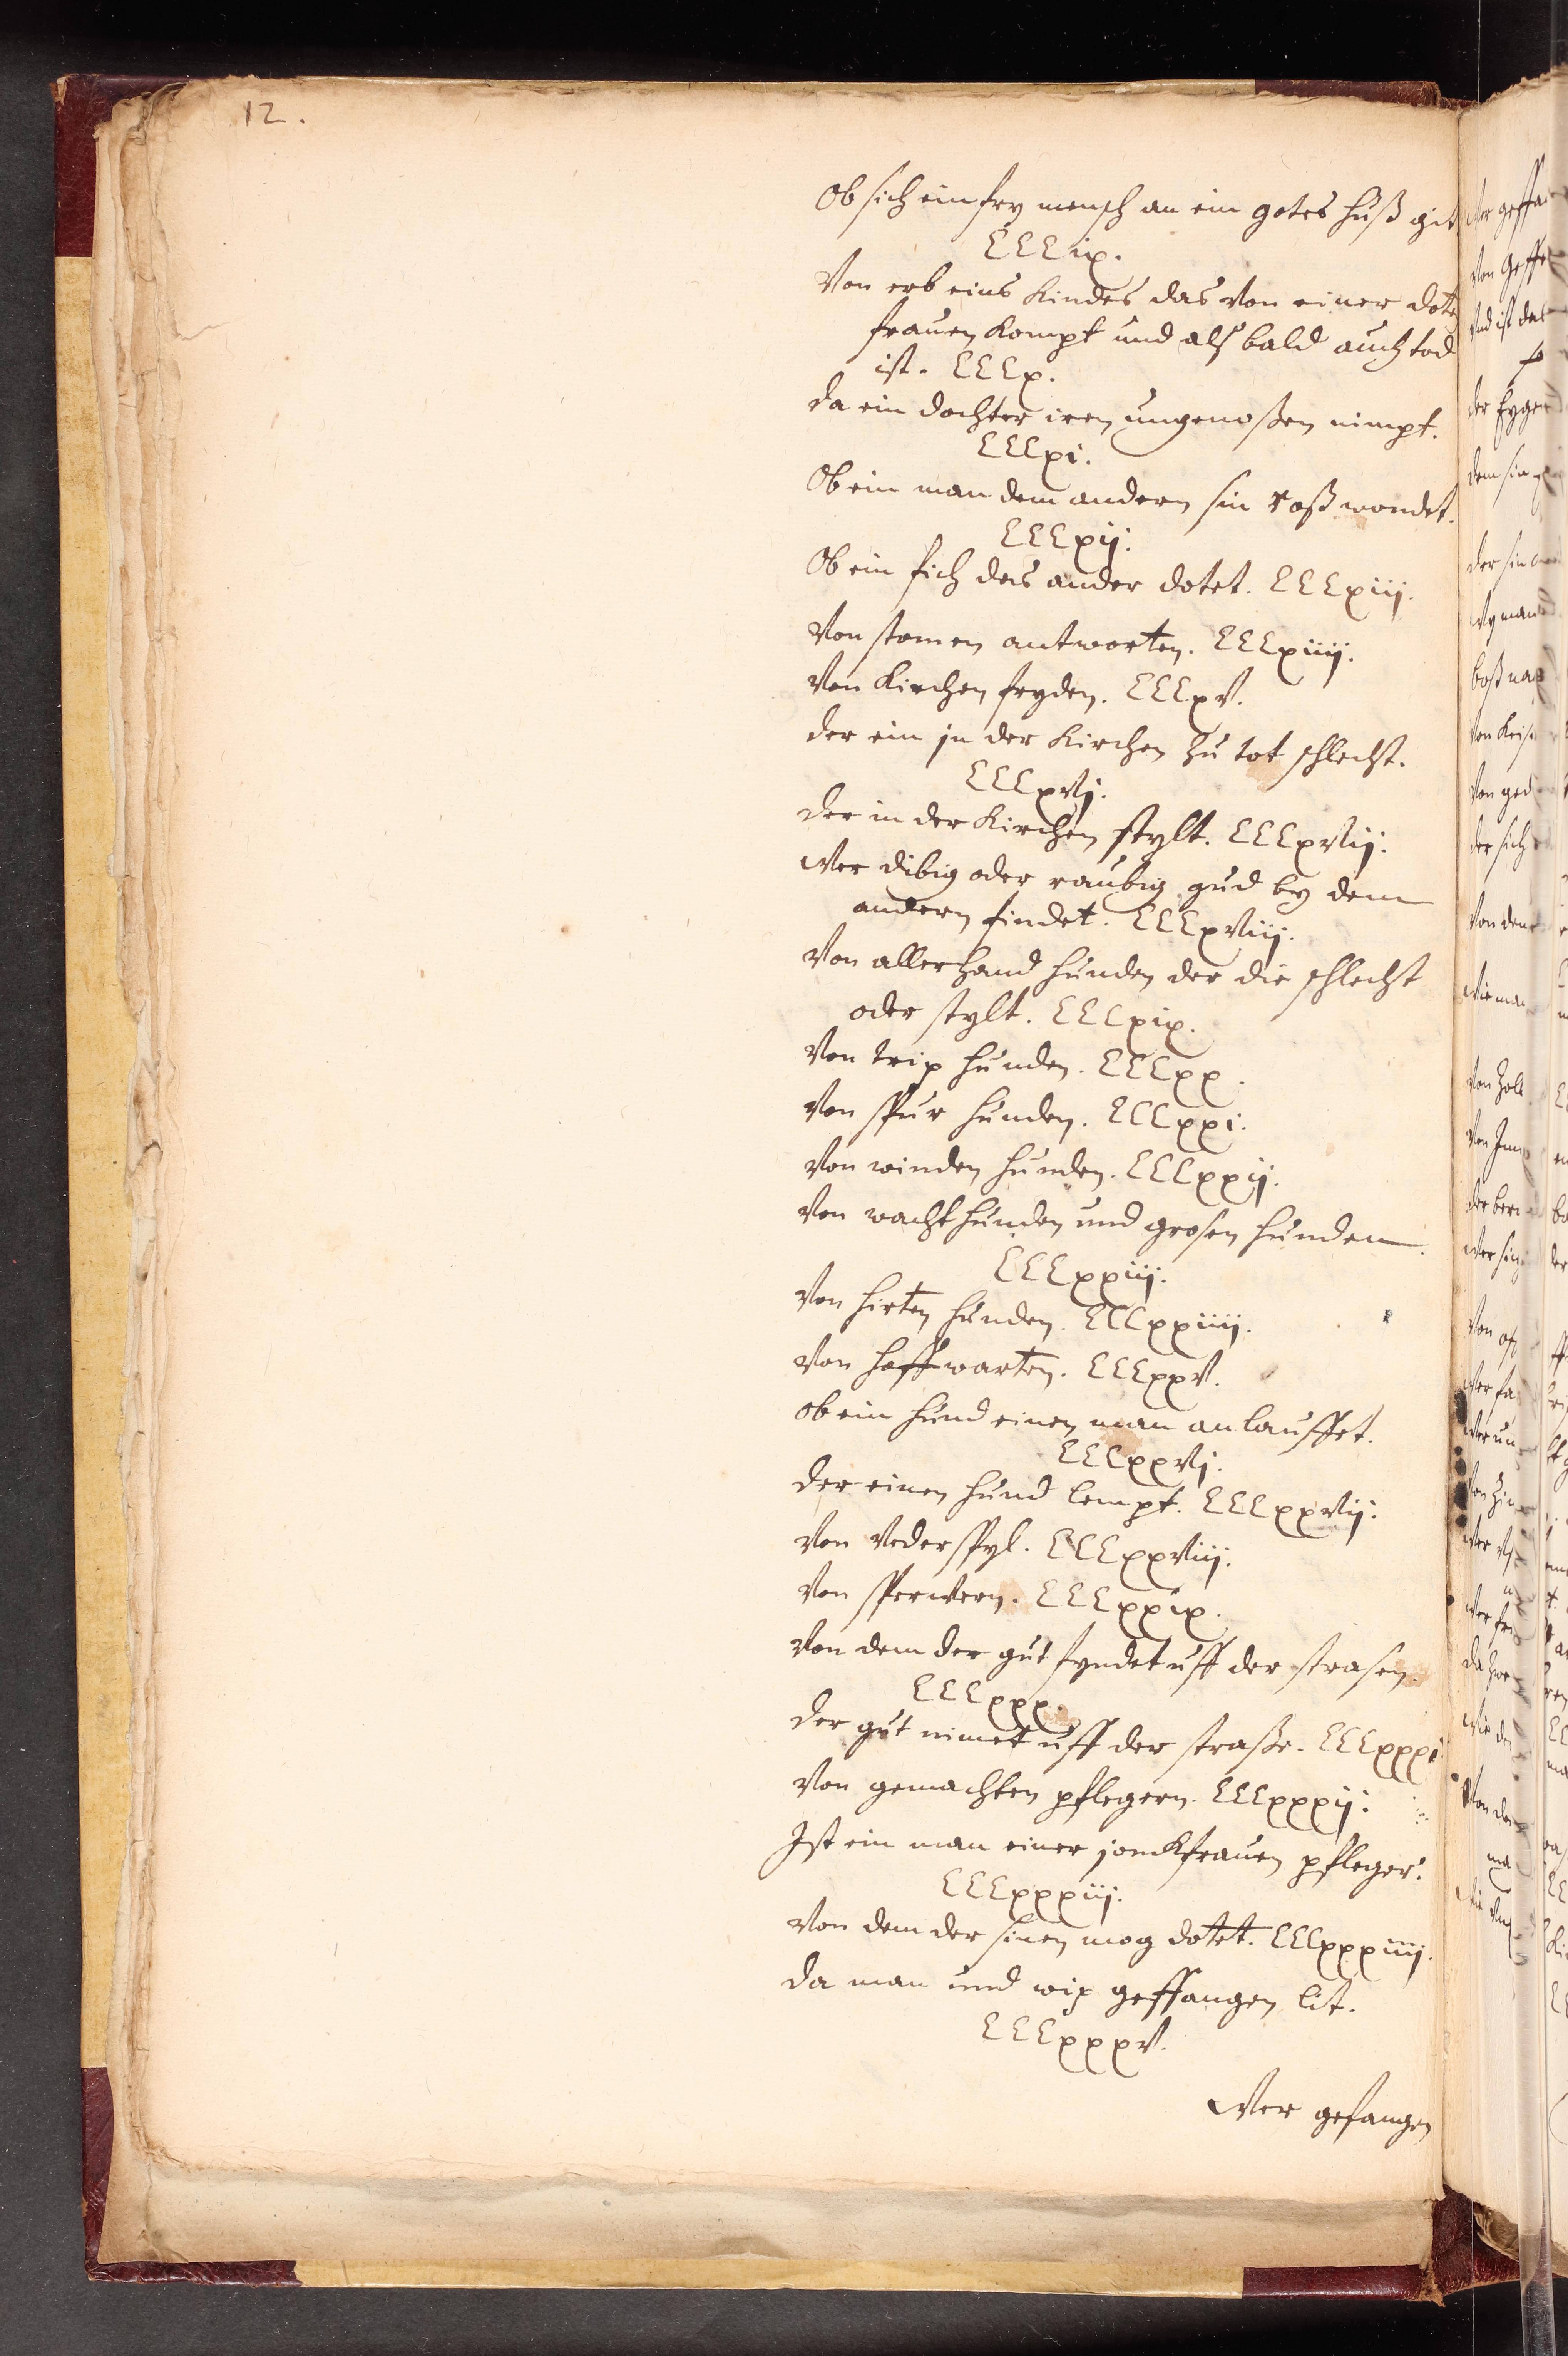 12.
Ob sich ein fry mensch an ein gotes huß git
CCCix.
Von erb eins kindes das von einer doten
frauen kompt und als bald auch tod
ist. CCCx.
da ein dochter iren ungenoßen nimpt.
CCCxi.
Ob ein man dem andern sin roß wondet.
CCCxij.
Ob ein fich das ander dotet. CCCxiij.
Von stomen antworten. CCCxiiij.
Von Kirchen fryden. CCCxv.
der ein jn der Kirchen zu tot schlecht.
CCCxvj.
der in der Kirchen stylt. CCCxvij.
Wer dibig oder raubig gud by dem
andern findet. CCCxviij.
Von allerhand hunden der die schlecht
oder stylt. CCCxix.
Von trip hunden. CCCxx.
Von spur hunden. CCCxxi.
Von winden hunden. CCCxxij.
Von wacht hunden und grosen hunden.
CCCxxiij.
Von hirten hunden. CCCxxiiij.
Von hoffwarten. CCCxxv.
ob ein hund einen man anlauffet.
CCCxxvj.
der einen hund lempt. CCCxxvij.
Von vederspyl. CCCxxviij.
Von sperwern. CCCxxix.
Von dem der gut fyndet uff der strasen.
CCCxxx.
der gut nimet uff der straße. CCCxxxi
Von gemachten pflegern. CCCxxxij.
Ist ein man einer jonckfrauen pfleger.
CCCxxxiij.
Von dem der sinen mog dotet. CCCxxxiiij.
da man und wip geffangen lit.
CCCxxxv.
Wer gefangen